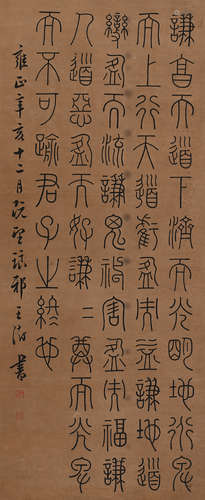 謙亨天道下濟而光明地道卑
而上行天道虧盈而益謙地道
變盈而流謙鬼神害盈而福謙
人道惡盈而好謙〻尊而光卑
而不可踰君子之終也
雍正辛亥十二月既望琅邪王澍書